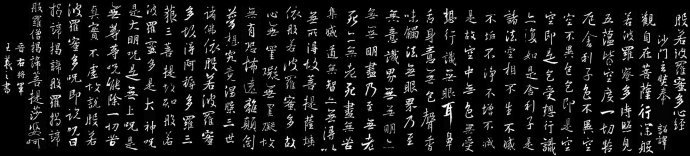 般若波羅蜜多心經
沙門玄奘奉 詔譯
觀自在菩薩行深般
若波羅蜜多時照見
五蘊皆空度一切苦
厄舍利子色不異空
空不異色色即是空
空即是色受想行識
亦復如是舍利子是
諸法空相不生不滅
不垢不淨不增不減
是故空中無色無受
想行識無眼耳鼻
舌身意無色聲香
味觸法無眼界乃至
無意識界無無明亦
無無明盡乃至無老
死亦無老死盡無苦
集滅道無智亦無得
以無所得故菩提薩埵
依般若波羅蜜多故
心無罣礙無罣礙故
無有恐怖遠離顛倒
夢想究竟涅槃三世
諸佛依般若波羅蜜
多故得阿耨多羅三
藐三菩提故知般若
波羅蜜多是大神咒
是大明咒是無上咒是
無等等咒能除一切苦
真實不虛故說般若
波羅蜜多咒即說咒曰
揭諦揭諦般羅揭諦
般羅僧揭諦菩提莎婆呵
晉右將軍
王羲之書